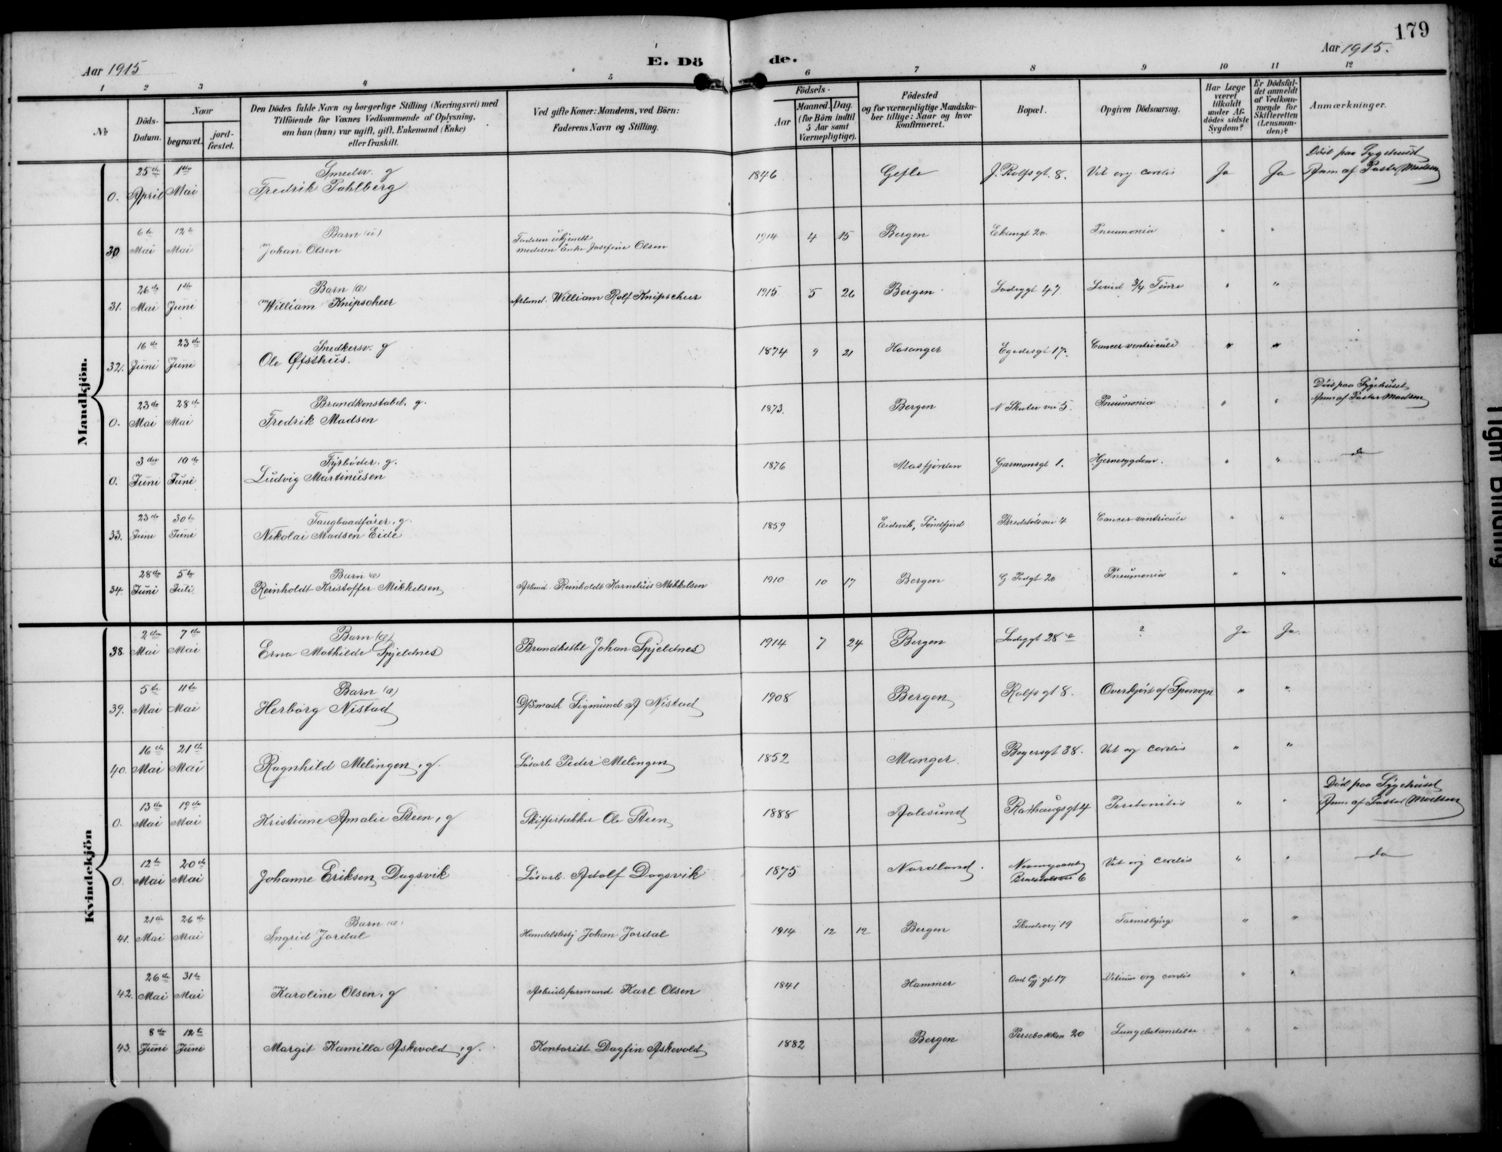 179
Aar 1915
E. Döde.
Aar 1915.
1 2 3 4 5 6 7 8 9 10 11 12
No
Döds-Datum.
Naar begravet. jordfæstet.
Den Dödes fulde Navn og borgerlige Stilling (Næringsvei) med Tilföiende for Voxnes Vedkommende af Oplysning, om han (hun) var ugift, gift, Enkemand (Enke) eller fraskilt.
Ved gifte Koner: Mandens, ved Börn: Faderens Navn og Stilling.
Födsels-
Aar Maaned. Dag. (for Börn indtil 5 Aar samt Værnepligtige).
Födested og for værnepligtige Mandskaber tillige: Naar og hvor konfirmeret.
Bopæl.
Opgiven Dödsaarsag.
Har Læge været tilkaldt under Afdödes sidste Sygdom?
Er Dödsfaldet anmeldt af Vedkommende for Skifteretten (Lensmanden)?
Anmærkninger.
Mandkjön.
0. 25de April 1ste Mai Smedsv. g Fredrik Pahlberg 1846 Gefle J. Rolfsgt 8. Vit org cordis Ja Ja Död paa Sygehuset Anm af Pastor Madsen
30 6te Mai 12te Mai Barn (u) Johan Olsen Faderen ukjendt Moderen Enke Josefine Olsen 1914 4 15 Bergen Ekengt 20 Pneumonia " "
31. 26de Mai 1ste Juni Barn (æ) William Knipscheer William Rolf Knipscheer 1915 5 26 Bergen Ladeggt 47 " "
32. 16de Juni 23de Juni Snedkersv. g Ole Øfsthus. 1874 9 21 Hosanger Egedesgt 17. Cancer ventriculi " "
0. 23de Mai 28de Mai Brandkonstabel. g. Fredrik Madsen 1873. Bergen 5. Pneumonia " " Död paa Sygehuset Anm af Pastor Madsen
0. 3die Juni 10de Juni Fyrböder. g. Ludvig Martinusen 1876 Masfjorden Garmansgt 1. Hjernesygdom. " " do
33. 23de Juni 30te Juni Taugbaadförer, g. Nikolai Madsen Eide 1859 Söndfjord 4 Cancer ventriculi " "
34. 28de Juni 5te Juli. Barn (æ) Reinholdt Kristoffer Mikkelsen Reinholdt Kornelius Mikkelsen 1910 10 17 Bergen 20 Pneumonia " "
Kvindekjön
38. 2den Mai 7de Mai Barn (æ) Erna Mathilde Spjeldnes Brandkstbl Johan Spjeldnes 1914 7 24 Bergen Ladeggt 28 ? Ja Ja.
39. 5te Mai 11te Mai Barn (æ) Herborg Nistad Sigmund A Nistad 1908 Bergen Rolfsgt 8. Overkjört af Sporvogn " "
40. 16de Mai 21de Mai Ragnhild Melingen, g. Lösarb Peder Melingen 1852 Manger Bøgersgt 38. Vit org cordis " "
0. 13de Mai 19de Mai Kristiane Amalie Steen, g Ole Steen 1888 Aalesund Rathausgt 4 Peritonitis " " Död paa Sygehuset Anm af Pastor Madsen
0. 12te Mai 20de Mai Johanne Eriksen Dagsvik Lösarb. Adolf Dagsvik 1875 Nordland. 6 Vit org cordis " " do
41. 21de Mai 26de Mai Barn (æ) Ingrid Jordal Handelsbetj Johan Jordal 1914 12 12 Bergen 19 " "
42. 26de Mai 31te Mai Karoline Olsen, g Arbeidsformand Karl Olsen 1841 Hammer 17 Vitium org cordis " "
43. 8de Juni 12te Juni Margit Kamilla Askevold, g. Kontorist Dagfin Askevold 1882 Bergen Persebakken 20 Lungebetændelse " "
Tight Binding